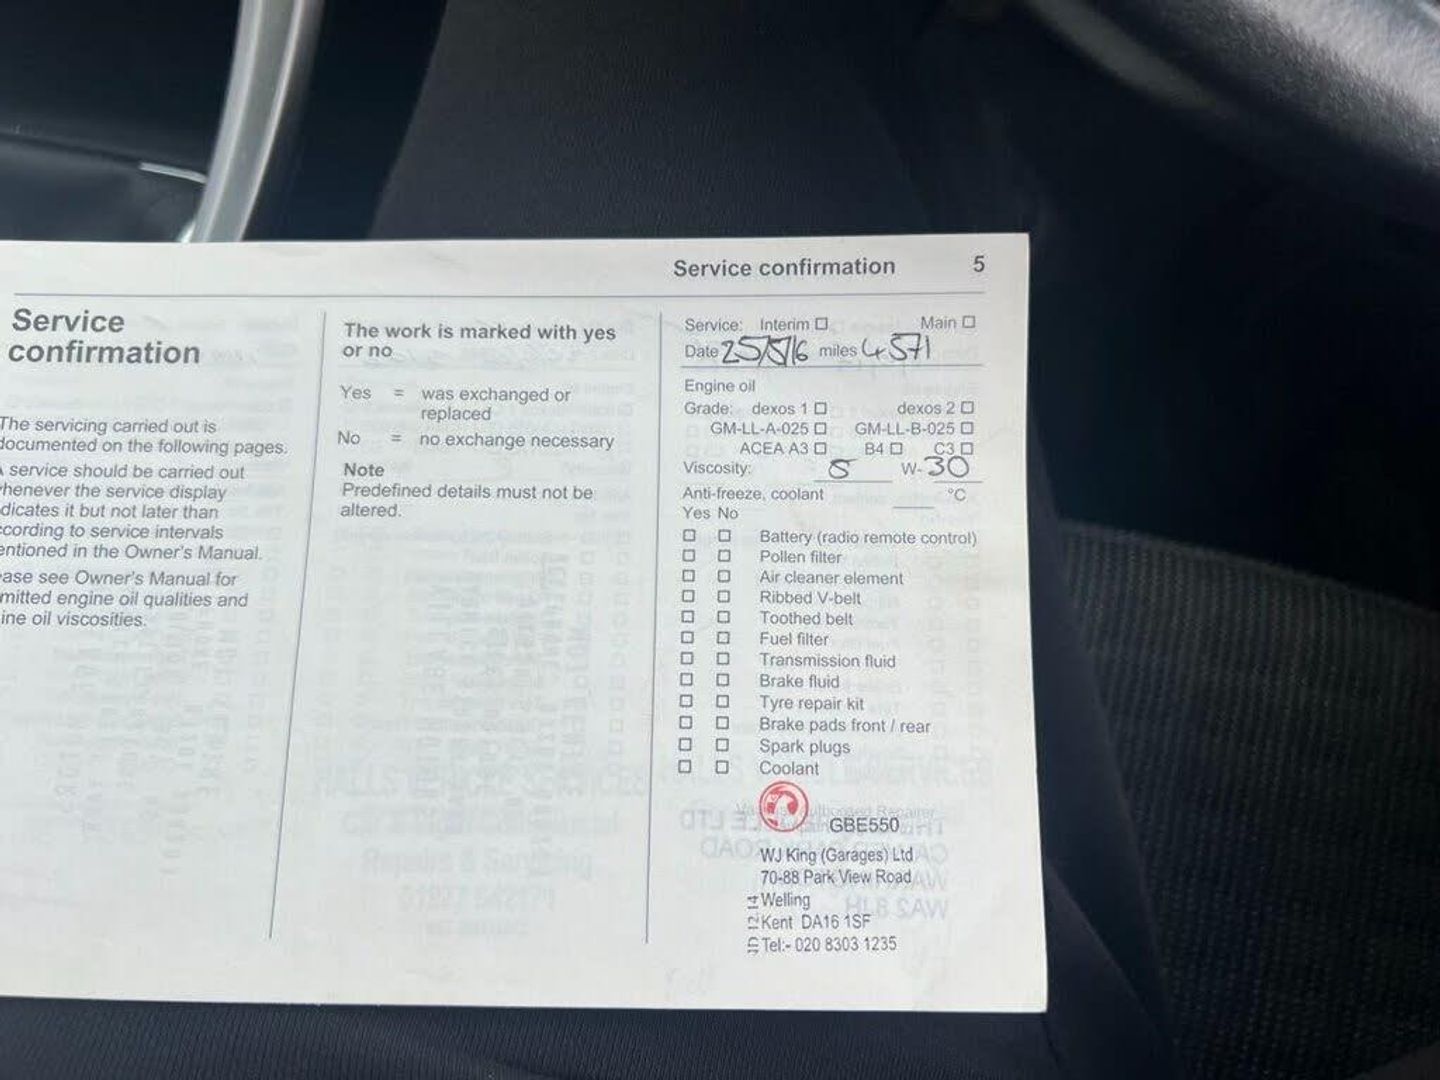 Service confirmation 5
Service
confirmation
The servicing carried out is
documented on the following pages.
A service should be carried out
whenever the service display
dicates it but not later than
cording to service intervals
entioned in the Owner's Manual.
ase see Owner's Manual for
mitted engine oil qualities and
ine oil viscosities.
The work is marked with yes
or no
Yes = was exchanged or
replaced
No = no exchange necessary
Note
Predefined details must not be
altered.
Service: Interim ☐ Main ☐
Date 25/5/16 miles 4571
Engine oil
Grade: dexos 1 ☐ dexos 2 ☐
GM-LL-A-025 ☐ GM-LL-B-025 ☐
ACEA A3 ☐ B4 ☐ C3 ☐
Viscosity: 5 W-30
Anti-freeze, coolant °C
Yes No
☐ ☐ Battery (radio remote control)
☐ ☐ Pollen filter
☐ ☐ Air cleaner element
☐ ☐ Ribbed V-belt
☐ ☐ Toothed belt
☐ ☐ Fuel filter
☐ ☐ Transmission fluid
☐ ☐ Brake fluid
☐ ☐ Tyre repair kit
☐ ☐ Brake pads front / rear
☐ ☐ Spark plugs
☐ ☐ Coolant
Authorised Repairer
GBE550
WJ King (Garages) Ltd
70-88 Park View Road
Welling
Kent DA16 1SF
Tel:- 020 8303 1235